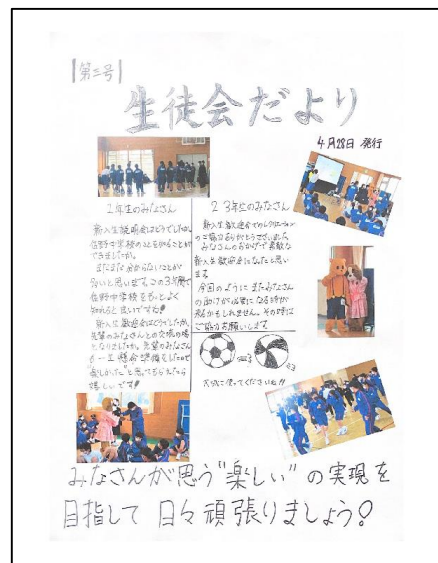 第二号
生徒会だより
4月28日 発行
1年生のみなさん
新入生説明会はどうでしたか。
佐野中学校のことを知ることが
できましたか。
まだまだ分からないことが
多いと思います。この3年間で
佐野中学校をもっとよく
知れると良いですね!
新入生歓迎会はどうでしたか。
先輩のみなさんとの交流の場
となりましたか。先輩のみなさん
も一生懸命準備をしたので
"楽しかった"と思ってもらえたら
嬉しいです!
2 3年生のみなさん
新入生歓迎会でのレクリエーション
のご協力ありがとうございました。
みなさんのおかげで素敵な
新入生歓迎会になったと思い
ます。
今回のようにまたみなさん
の助けが必要になる時が
来るかもしれません。その時は
ご協力お願いします。
大切に使ってくださいね!!
みなさんが思う"楽しい"の実現を
目指して 日々頑張りましょう!